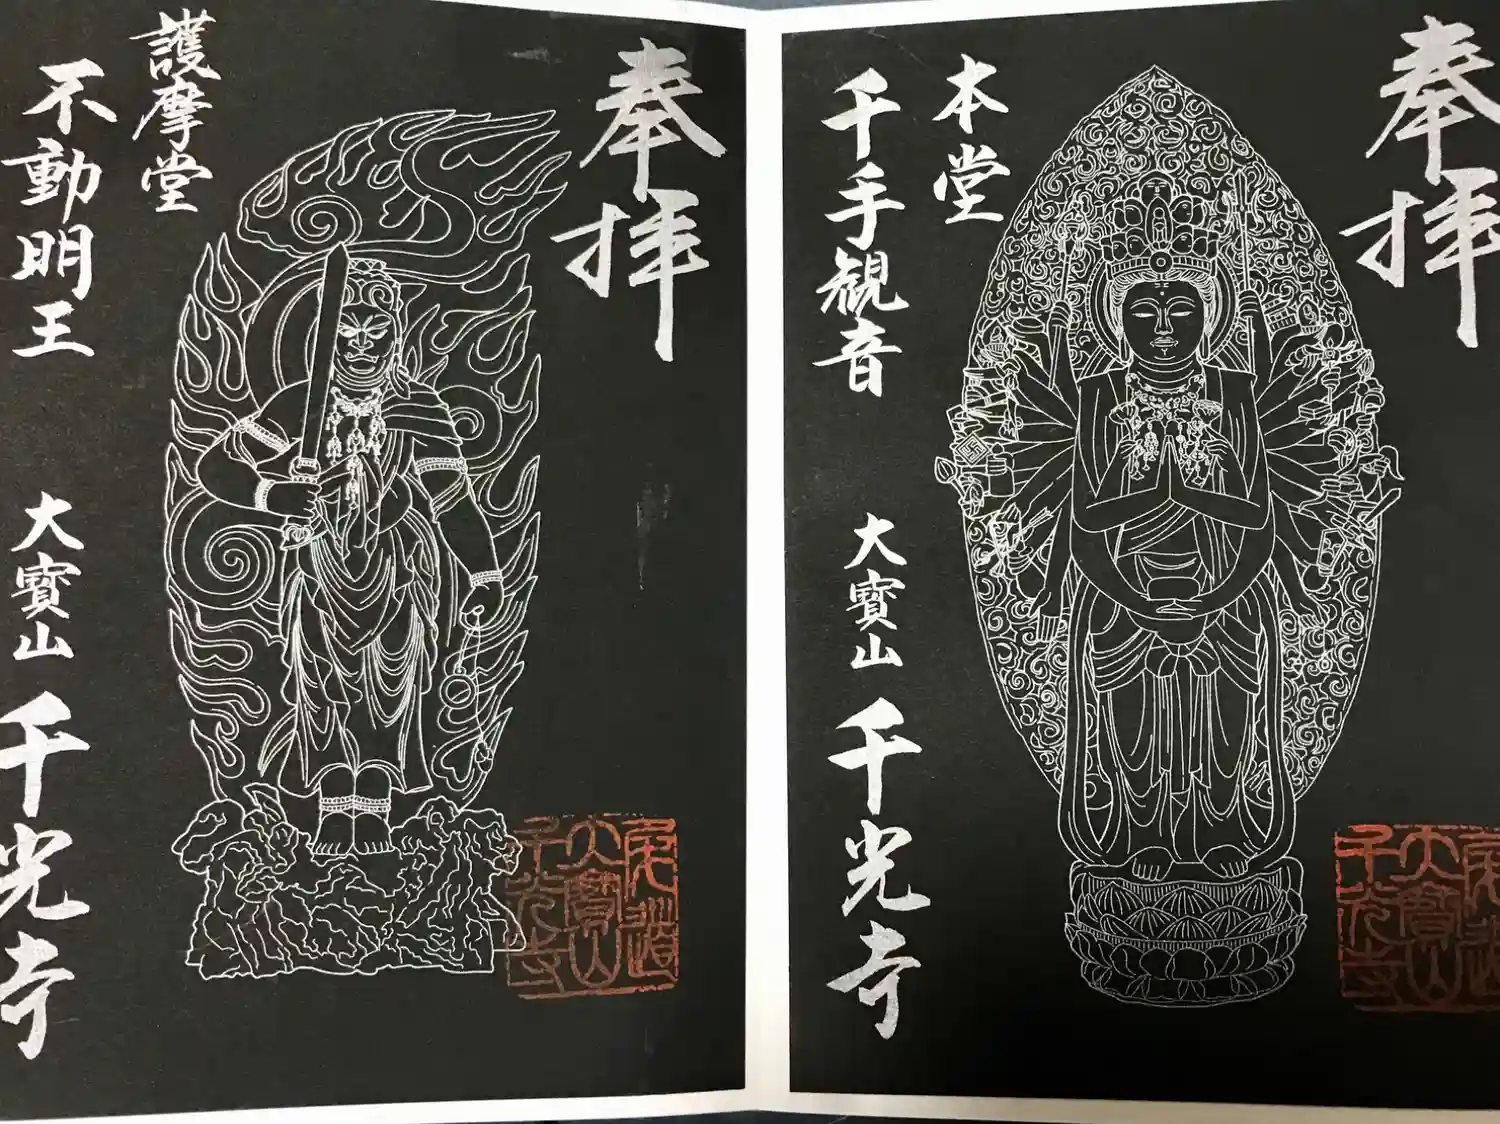 奉拝
本堂
千手観音
大寶山
千光寺
尾道
大寶山
千光寺
奉拝
護摩堂
不動明王
大寶山
千光寺
尾道
大寶山
千光寺